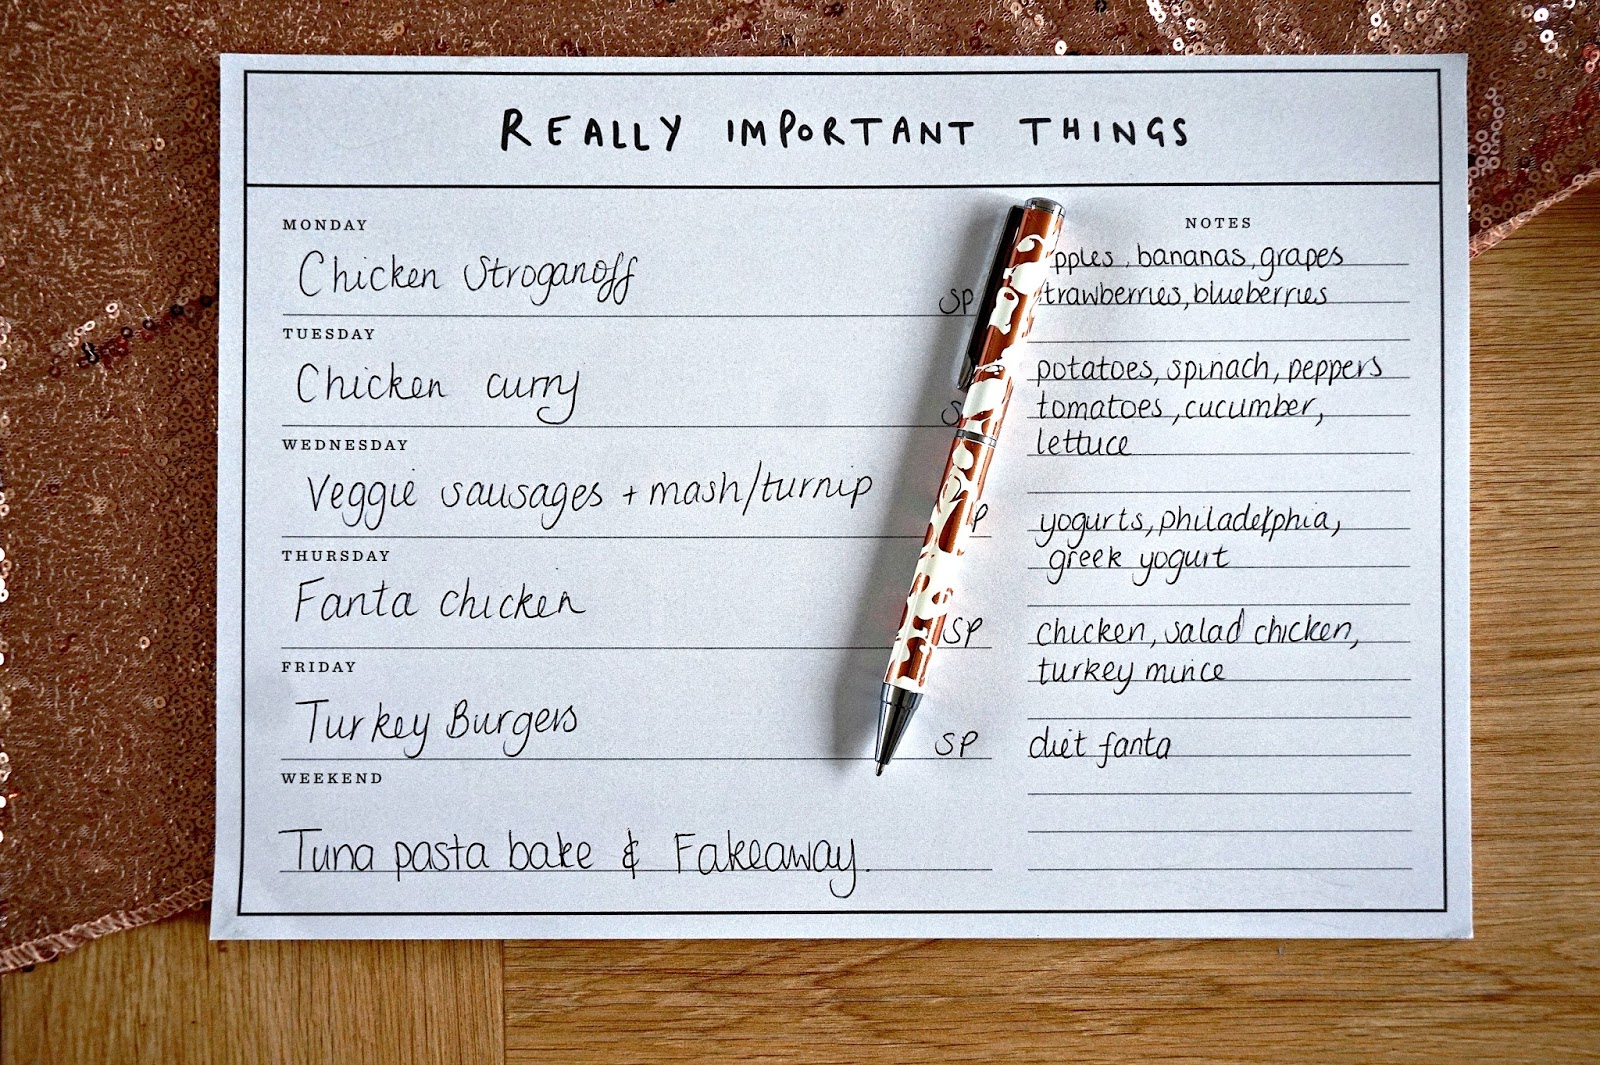 REALLY IMPORTANT THINGS
MONDAY
Chicken Stroganoff SP
TUESDAY
Chicken curry
WEDNESDAY
Veggie sausages + mash/turnip
THURSDAY
Fanta chicken SP
FRIDAY
Turkey Burgers SP
WEEKEND
Tuna pasta bake & Fakeaway.
NOTES
pples, bananas, grapes
trawberries, blueberries
potatoes, spinach, peppers
tomatoes, cucumber,
lettuce
yogurts, philadelphia,
greek yogurt
chicken, salad chicken,
turkey mince
diet fanta